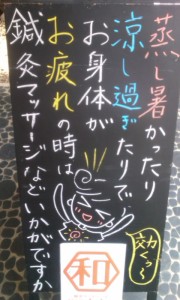 蒸し暑かったり
涼し過ぎたりで
お身体が
お疲れの時は
鍼灸マッサージなどいかがですか
効く〜
和